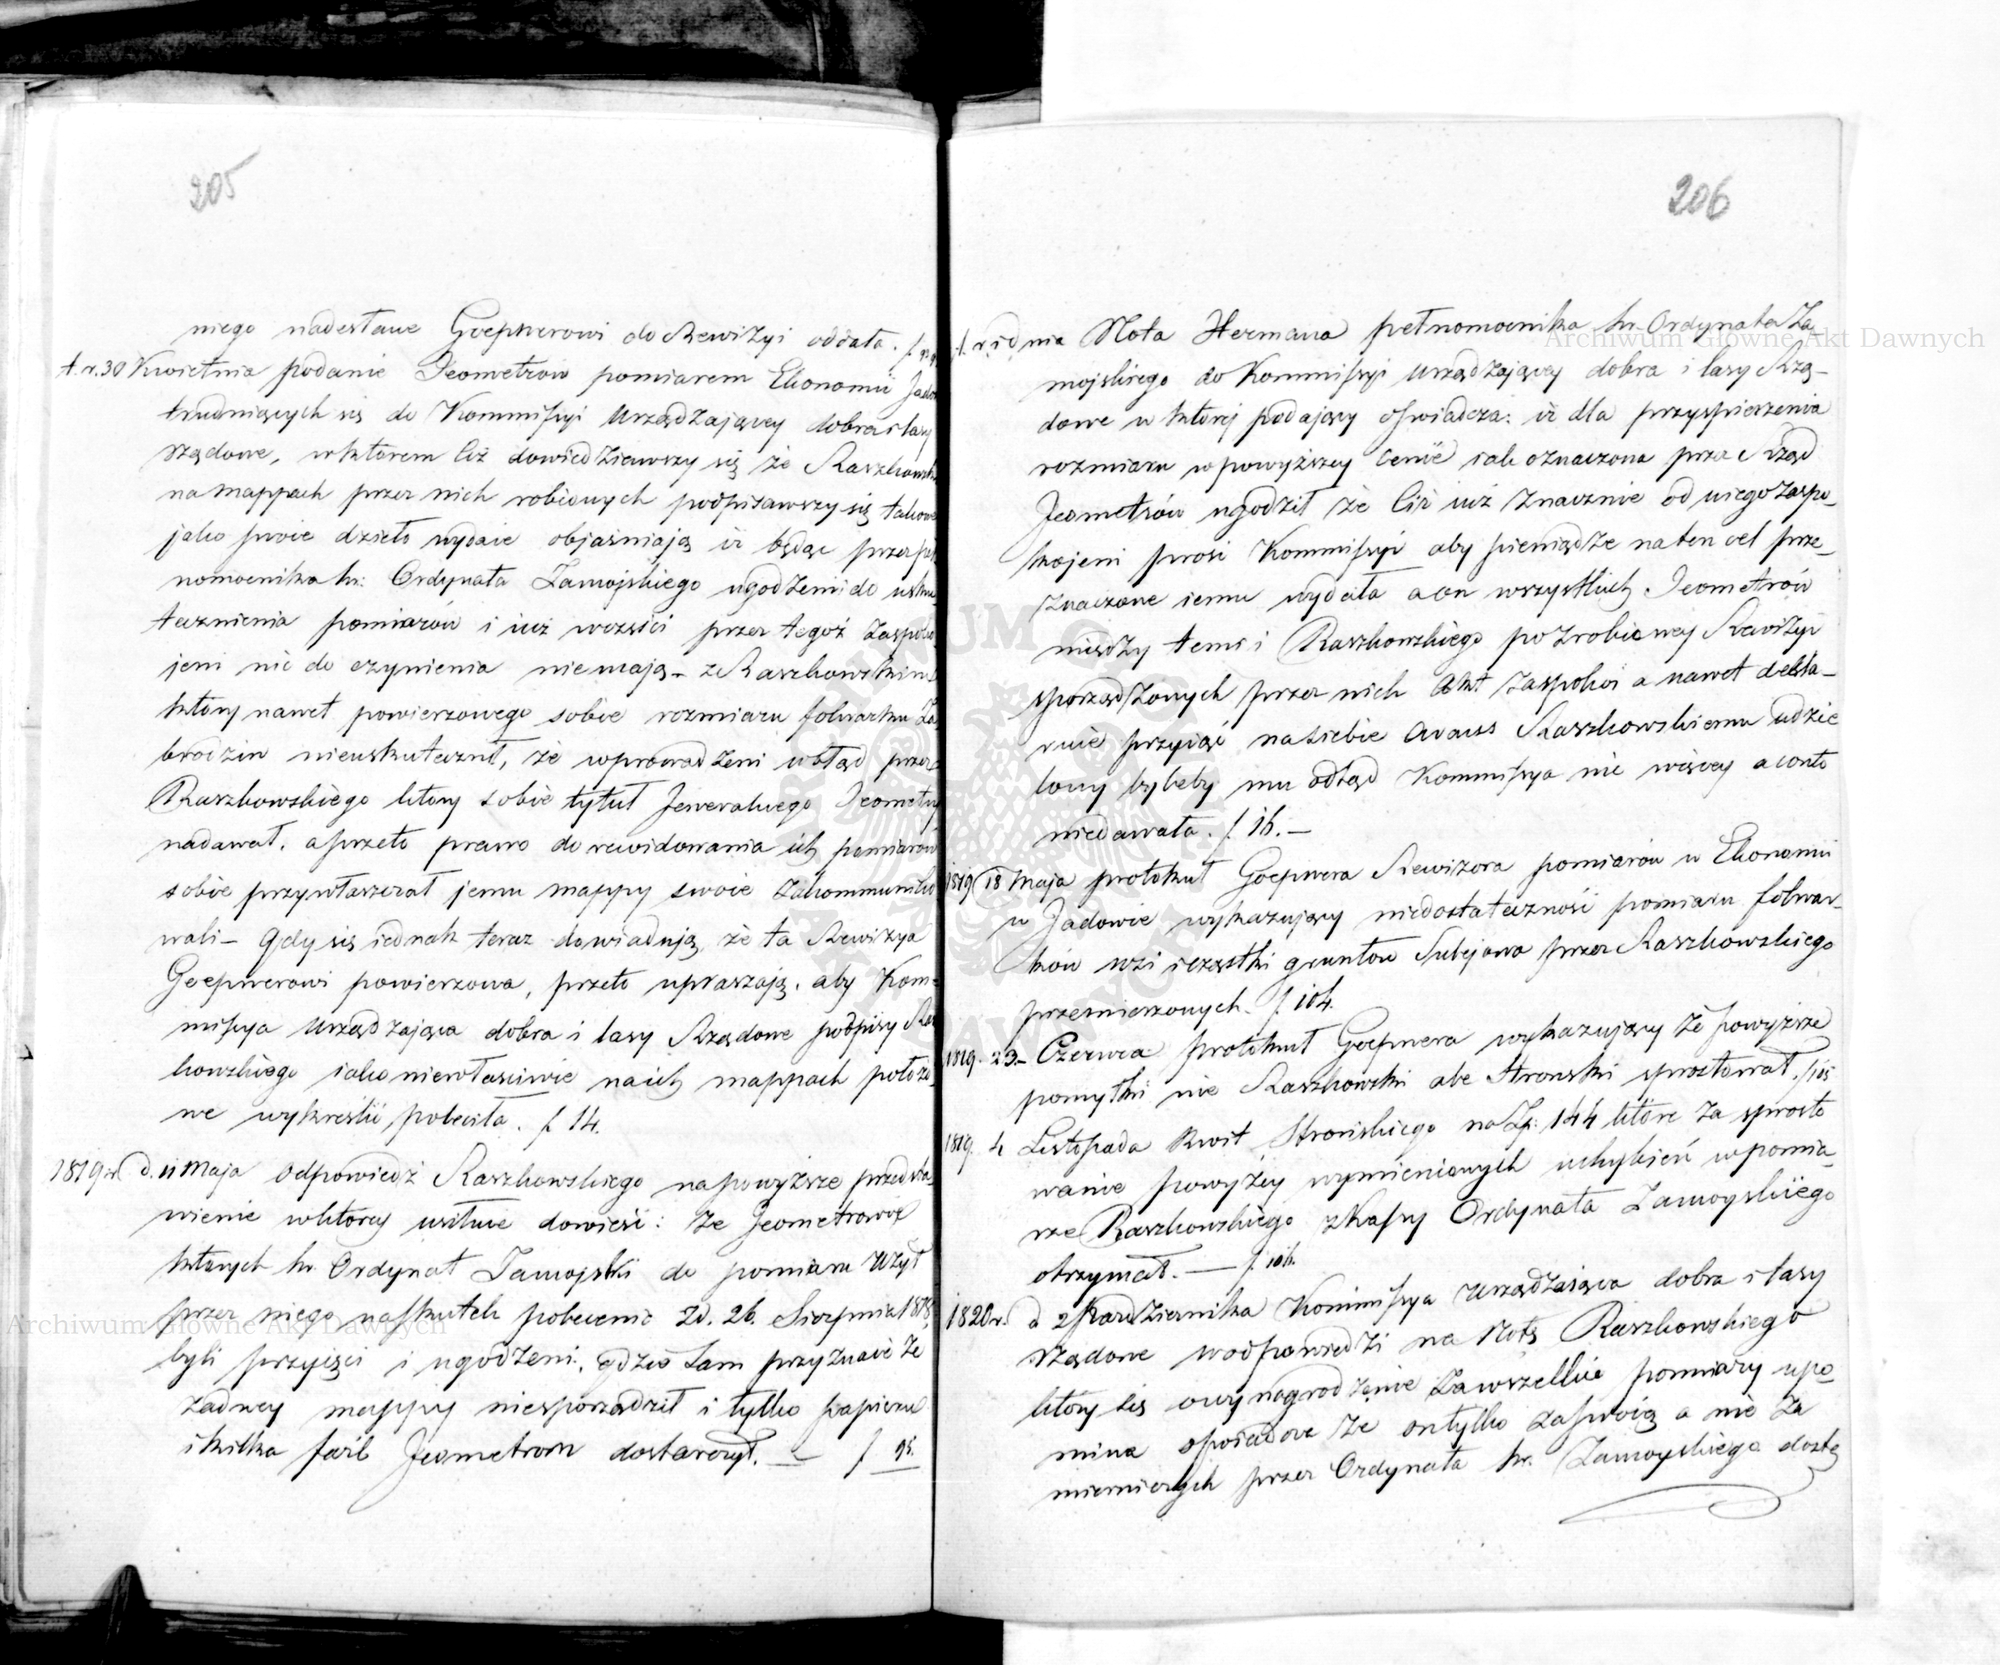 205
niego nadesłane Goepnerowi do Rewizyi oddała. f.
t. r. 30 Kwietnia podanie Jeometrow pomiarem Ekonomii Jado
trudniących się do Kommissyi Urządzaiącey dobra i lasy
rządowe, w którem Ciż dowiedziawszy się że Raszkowski
na mappach przez nich robionych podpisawszy się takowe
jako swoie dzieło wydaie objaśniają iż będąc przez peł
nomocnika hr: Ordynata Zamojskiego ugodzeni do usku
tecznienia pomiarów i iuż wczęści przez tegoż zaspoko
jeni nic do czynienia nie mają – z Raszkowskim
który nawet powierzonego sobie rozmiaru folwarku Za
brodzin nieuskutecznił, że wprowadzeni wbłąd przez
Raszkowskiego który sobie tytuł Jeneralnego Jeometry
nadawał, a przeto prawo do rewidowania ich pomiarów
sobie przywłaszczał jemu mappy swoie zakommuniko
wali – Gdy się iednak teraz dowiadują, że ta Rewizya
Goepnerowi powierzona, przeto upraszają, aby Kom-
missya Urządzająca dobra i lasy Rządowe podpisy Rasz
kowskiego iako niewłaściwie na ich mappach położo
ne wykreślić poleciła. f. 14.
1819 r. d. 11 Maja Odpowiedź Raszkowskiego na powyższe przedsta-
wienie w którey usiłuie dowieść: że Jeometrowie
których hr. Ordynat Zamojski do pomiaru użył
przez niego naskutek polecenia zd. 26. Sierpnia 1818
byli przyięci i ugodzeni, gdzie tam przyznaie że
żadney mappy niesporządził i tylko papieru
i kilka farb Jeometrom dostarczył. — f. 95.
206
t. r. i dnia Nota Hermana pełnomocnika hr. Ordynata Za
mojskiego do Kommissyi Urządzającey dobra i lasy Rzą-
dowe w której podający oświadcza: iż dla przyspieszenia
rozmiaru w powyższey cenie iak oznaczona przez Rząd
Jeometrów ugodził że Ciż iuż znacznie od niego zaspo-
kojeni prosi Kommissyi aby pieniądze na ten cel prze-
znaczone iemu wydała a on wszystkich Jeometrów
między temi i Raszkowskiego po zrobioney Rewizyi
sporządzonych przez nich Akt zaspokoi a nawet dekla-
ruie przyiąć na siebie avans Raszkowskiemu udzie
lony byleby mu odtąd Kommissya nic więcey a conto
niedawała. f. 16. —
1819 18 Maja protokuł Goepnera Rewizora pomiarów w Ekonomii
w Jadowie wykazujący niedostateczność pomiaru folwar-
ków wsi i cząstki gruntów Sulejowa przez Raszkowskiego
przemierzonych. f. 104.
1819. 23 – Czerwca protokuł Goepnera wykazujący że powyższe
pomyłki nie Raszkowski ale Stronski sprostował. f. 105
1819. 4 Listopada Kwit Strońskiego na Zp. 144 które za sprosto
wanie powyżey wymienionych uchybień w pomia-
rze Raszkowskiego z kassy Ordynata Zamoyskiego
otrzymał. — f. 106.
1820 r. d 2 Pazdziernika Kommissya Urządzaiąca dobra i lasy
rządowe w odpowiedzi na Notę Raszkowskiego
który się o wynagrodzenie za wszelkie pomiary upo
mina oświadcza że on tylko za swoią a nie za
mierniczych przez Ordynata hr. Zamoyskiego dostę